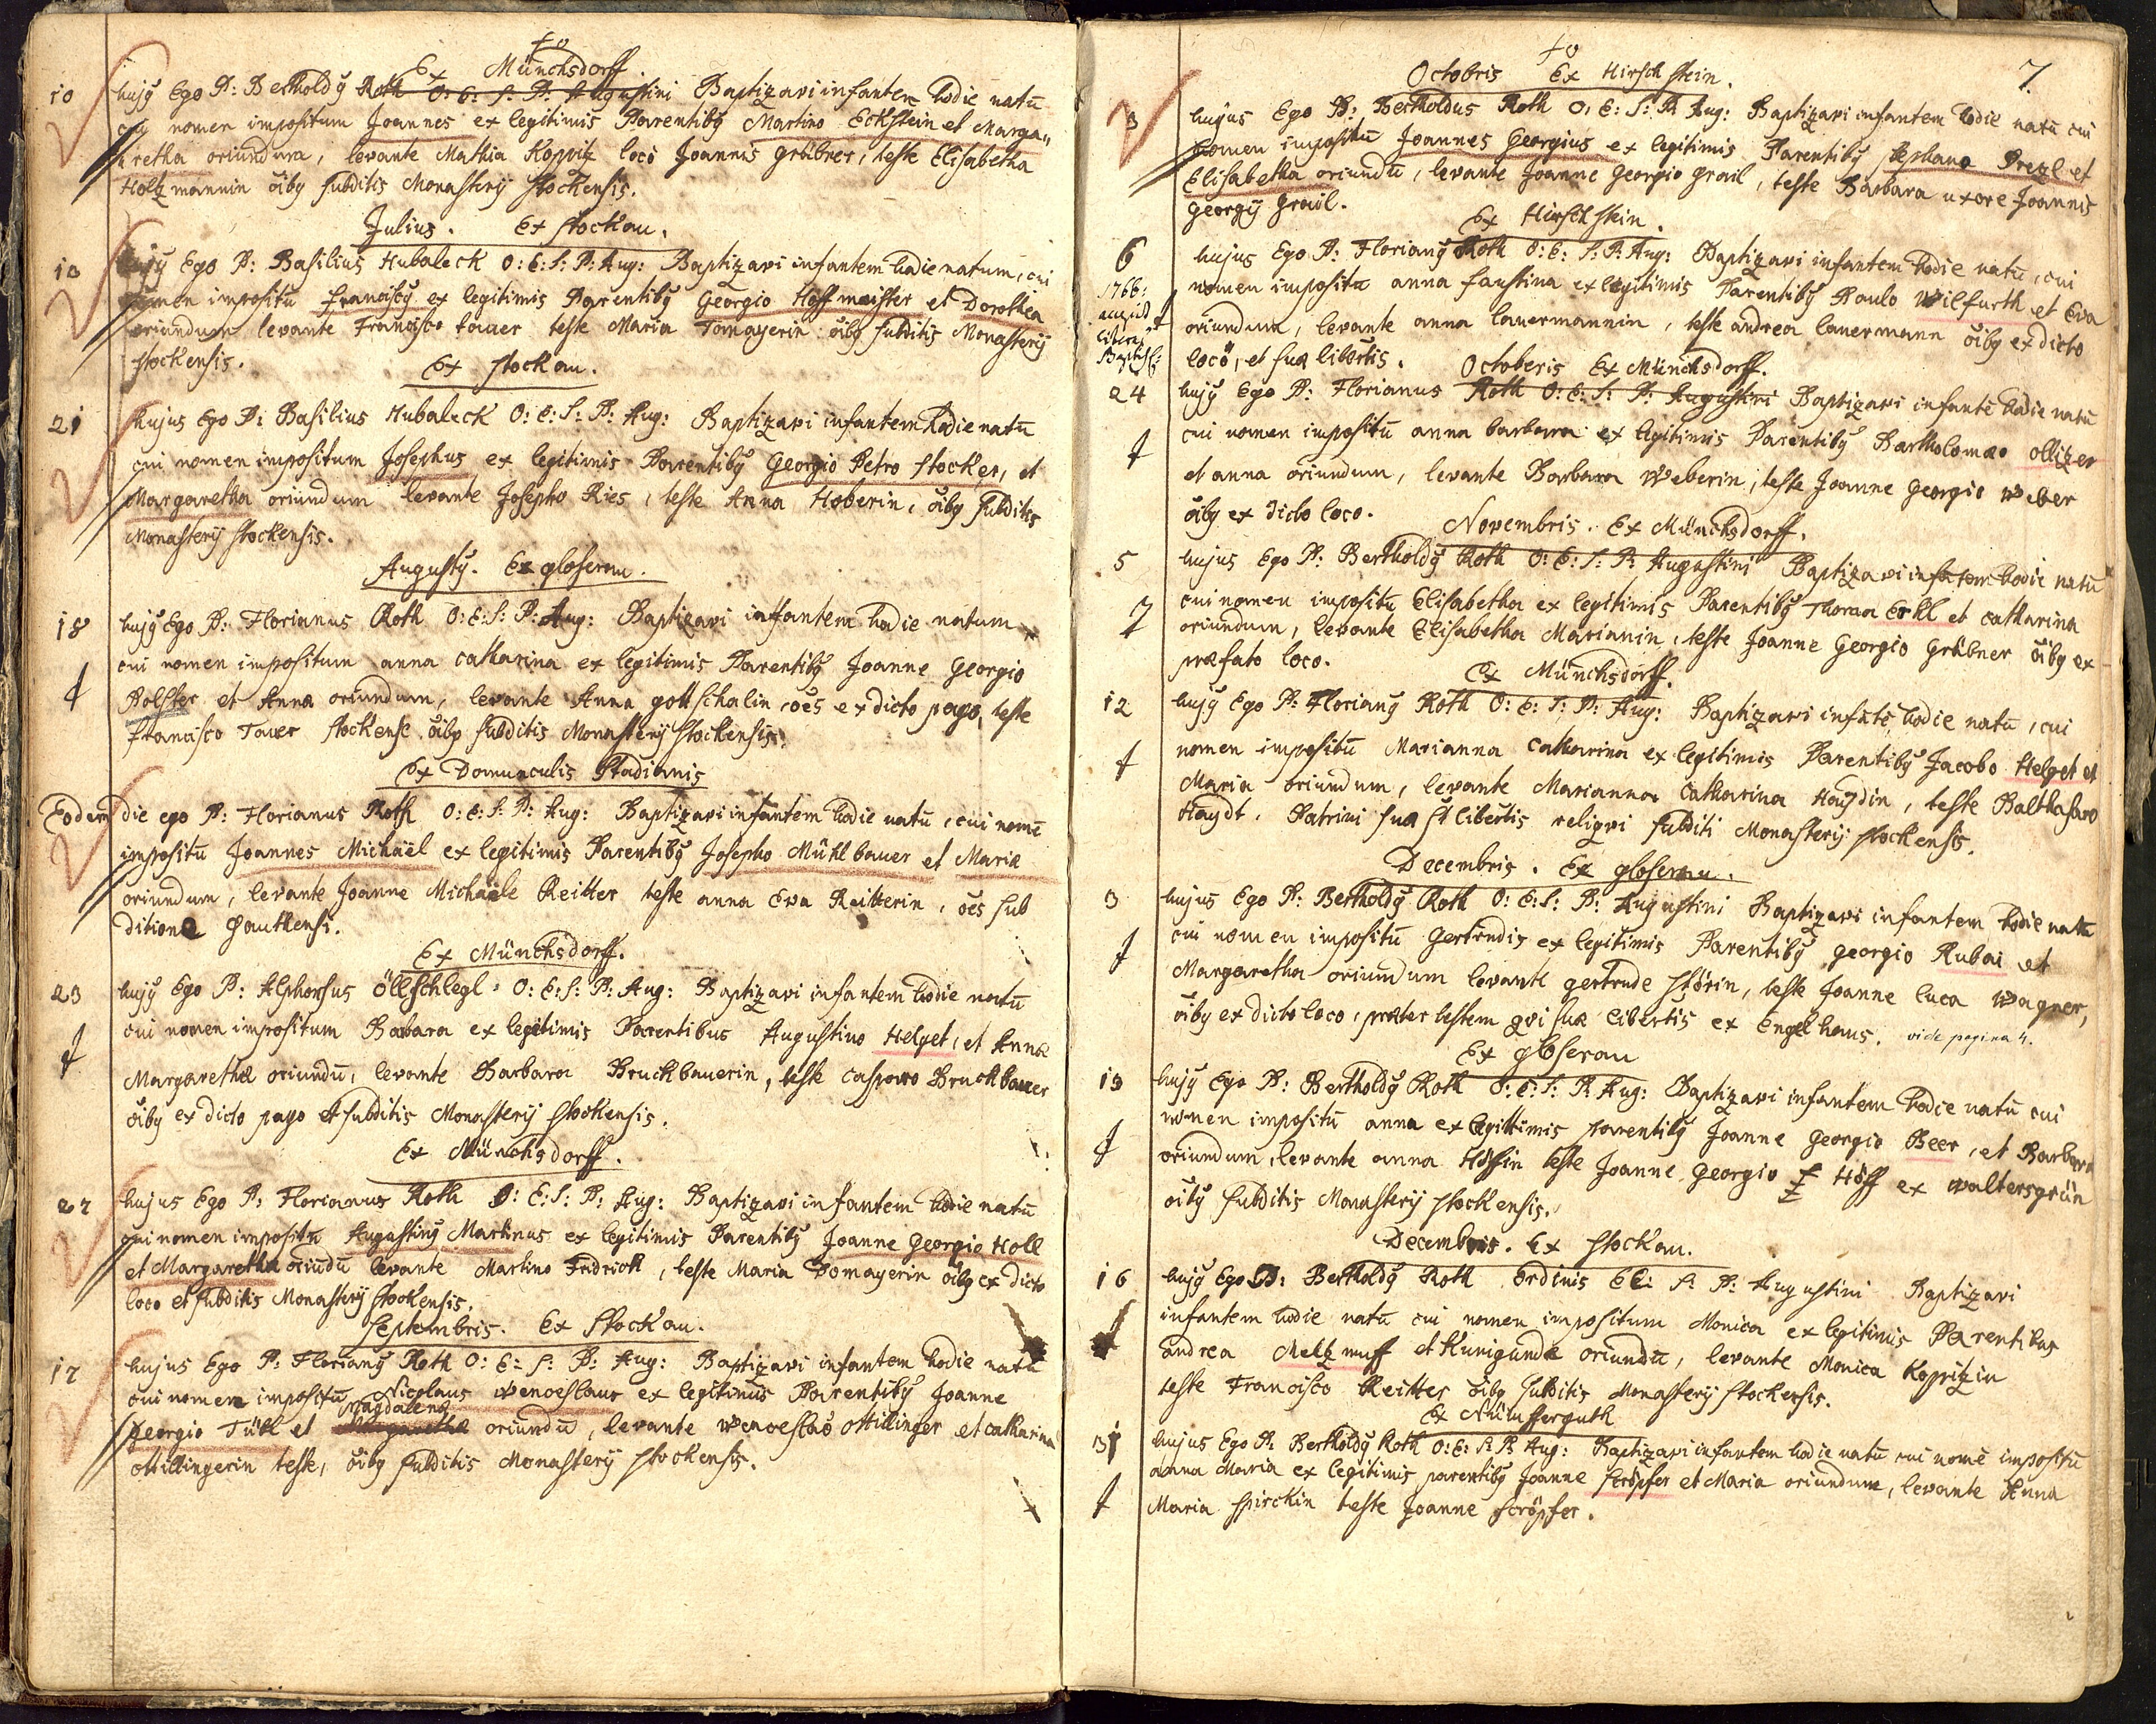 fo
Ex Münchsdorff.
10 hujꝰ Ego P: Bertholdꝰ Roth O: E: S: P: Augustini Baptizavi infantem hodie natū
cuj nomen impositum Joannes ex legitimis Parentibꝰ Martino Eckstein et Marga„
retha oriundum, levante Mathia Koppitz locò Joannis Grübner, teste Elisabetha
Holtzmannin õibꝰ subditis Monasterij Stockensis.
Julius. Ex Stockau.
10 hujꝰ Ego P: Basilius Hubaleck O: E: S: P: Aug: Baptizavi infantem hodie natum, cui
nomen impositū Franciscꝰ ex legitimis Parentibꝰ Georgio Hoffmeister et Dorothea
oriundum levante Francisco Tauer teste Maria Tomayerin õibꝰ subditis Monasterij
Stockensis.
Ex Stockau.
21 hujus Ego P: Basilius Hubaleck O: E: S: P: Aug: Baptizavi infantem hodie natū
cui nomen impositum Josephus ex legitimis Parentibꝰ Georgio Petro Stocker, et
Margaretha oriundum levante Josepho Ries, teste Anna Hoberin, õibꝰ subditis
Monasterij Stockensis.
Augustꝰ. Ex gloserau.
18 hujꝰ Ego P: Florianus Roth O: E: S: P: Aug: Baptizavi infantem hodie natum
cui nomen impositum anna catharina ex legitimis Parentibꝰ Joanne Georgio
Polster et Anna oriundum, levante Anna gottschalin, oẽs ex dicto pago, teste
Francisco Tauer Stockense õibꝰ subditis Monasterij Stockensis.
Ex Domunculis Stadianis
Eodem die ego P: Florianus Roth O: E: S: P: Aug: Baptizavi infantem hodie natū, cui nomẽ
impositū Joannes Michäel ex legitimis Parentibꝰ Josepho Mühlbauer et Maria
oriundum, levante Joanne Michaële Reitter teste anna Eva Reitterin, oẽs sub
ditione Gauthensi.
Ex Münchsdorff.
23 hujꝰ Ego P: Alphonsus Öllschlegl O: E: S: P: Aug: Baptizavi infantem hodie natū
cui nomen impositum Barbara ex legitimis Parentibus Augustino Helget, et Anna
Margaretha oriundū, levante Barbara Bruckbauerin, teste casparo Bruckbauer
õibꝰ ex dicto pago et subditis Monasterij Stockensis.
Ex Münchsdorff.
27 hujus Ego P: Florianus Roth O: E: S: P: Aug: Baptizavi infantem hodie natū
cui nomen impositū Augustinꝰ Martinus ex legitimis Parentibꝰ Joanne Georgio Holl
et Margaretha oriūdū levante Martino Fridrich, teste Maria Domayerin õibꝰ ex dicto
loco et subditis Monasterij Stockensis.
Septembris. Ex Stockau.
17 hujus Ego P: Florianꝰ Roth O: E: S: P: Aug: Baptizavi infantem hodie natū
cui nomen impositū Nicolaus wenceslaus ex legitimis Parentibꝰ Joanne
Magdalena
Georgio Tühl et Margaretha oriundū, levante wenceslao Ottillinger et catharina
Ottillingerin teste, õibꝰ subditis Monasterij Stockensis.
fo
7
Octobris Ex Hirschstein.
3 hujus Ego P: Bertholdus Roth O: E: S: P: Aug: Baptizavi infantem hodie natū cui
nomen impositū Joannes Georgius ex legitimis Parentibꝰ Stephano Drexl et
Elisabetha oriundū, levante Joanne Georgio Grail, teste Barbara uxore Joannis
Georgij Grail.
Ex Hirschstein.
6 hujus Ego P: Florianꝰ Roth O: E: S: P: Aug: Baptizavi infantem hodie natū, cui
1766:
nomen impositū anna faustina ex legitimis Parentibꝰ Paulo Wilfurth et Eva
oriundum, levante anna lauermannin, teste andrea lauermann õibꝰ ex dicto
Baptist:
locò, et suæ libertis.
Octoberis Ex Münchsdorff.
24 hujꝰ Ego P: Florianus Roth O: E: S: P: Augustini Baptizavi infantē hodie natū
cui nomen impositū anna barbara ex legitimis Parentibꝰ Bartholomæo ollizer
et anna oriundum, levante Barbara Weberin, teste Joanne Georgio Weber
õibꝰ ex dicto loco.
Novembris. Ex Münchsdorff.
5 hujus Ego P: Bertholdꝰ Roth O: E: S: P: Augustini Baptizavi infatem hodie natū
cui nomen impositū Elisabetha ex legitimis Parentibꝰ Thoma Erhl et catharina
oriundum, levante Elisabetha Marianin, teste Joanne Georgio Grübner õibꝰ ex
præfato loco.
Ex Münchsdorff.
12 hujꝰ Ego P: Florianꝰ Roth O: E: S: P: Aug: Baptizavi infātē hodie natū, cui
nomen impositū Marianna catharina ex legitimis Parentibꝰ Jacobo Helget et
Maria oriundum, levante Marianna Catharina Haydin, teste Balthasaro
Haydt. Patrini suæ st libertis reliqvi subditi Monasterij Stockensis.
Decembris. Ex gloserau.
3 hujus Ego P: Bertholdꝰ Roth O: E: S: P: Augustini Baptizavi infantem hodie natū
cui nomen impositū Gertrudis ex legitimis Parentibꝰ georgio Rubai et
Margaretha oriundum levante gertrude störin, teste Joanne luca Wagner,
õibꝰ ex dicto loco, præter testem qvi suæ libertis ex Engelhaus. vide pagina 4.
Ex gloserau
13 hujꝰ Ego P: Bertholdꝰ Roth O: E: S: P: Aug: Baptizavi infantem hodie natū cui
nomen impositū anna ex legittimis parentibꝰ Joanne Georgio Beer, et Barbara
oriundum, levante anna Höffin teste Joanne Georgio Höff ex waltersgrün
õibꝰ subditis Monasterij Stockensis.
Decembris. Ex Stockau.
16 hujꝰ Ego P: Bertholdꝰ Roth Ordinis EE: S: P: Augustini Baptizavi
infantem hodie natū cui nomen impositum Monica ex legitimis Parentibus
andrea Meltzmuff et Kunigunda oriundū, levante Monica Kopritzin
teste Francisco Reitter õibꝰ subditis Monasterij Stockensis.
Ex Nümsserguth
31 hujus Ego P: Bertholdꝰ Roth O: E: S: P: Aug: Baptizavi infantem hodie natū cui nomē impositū
anna Maria ex legitimis parentibꝰ Joanne Scröpfer et Maria oriundum, levante Anna
Maria Spirckin teste Joanne scröpfer.